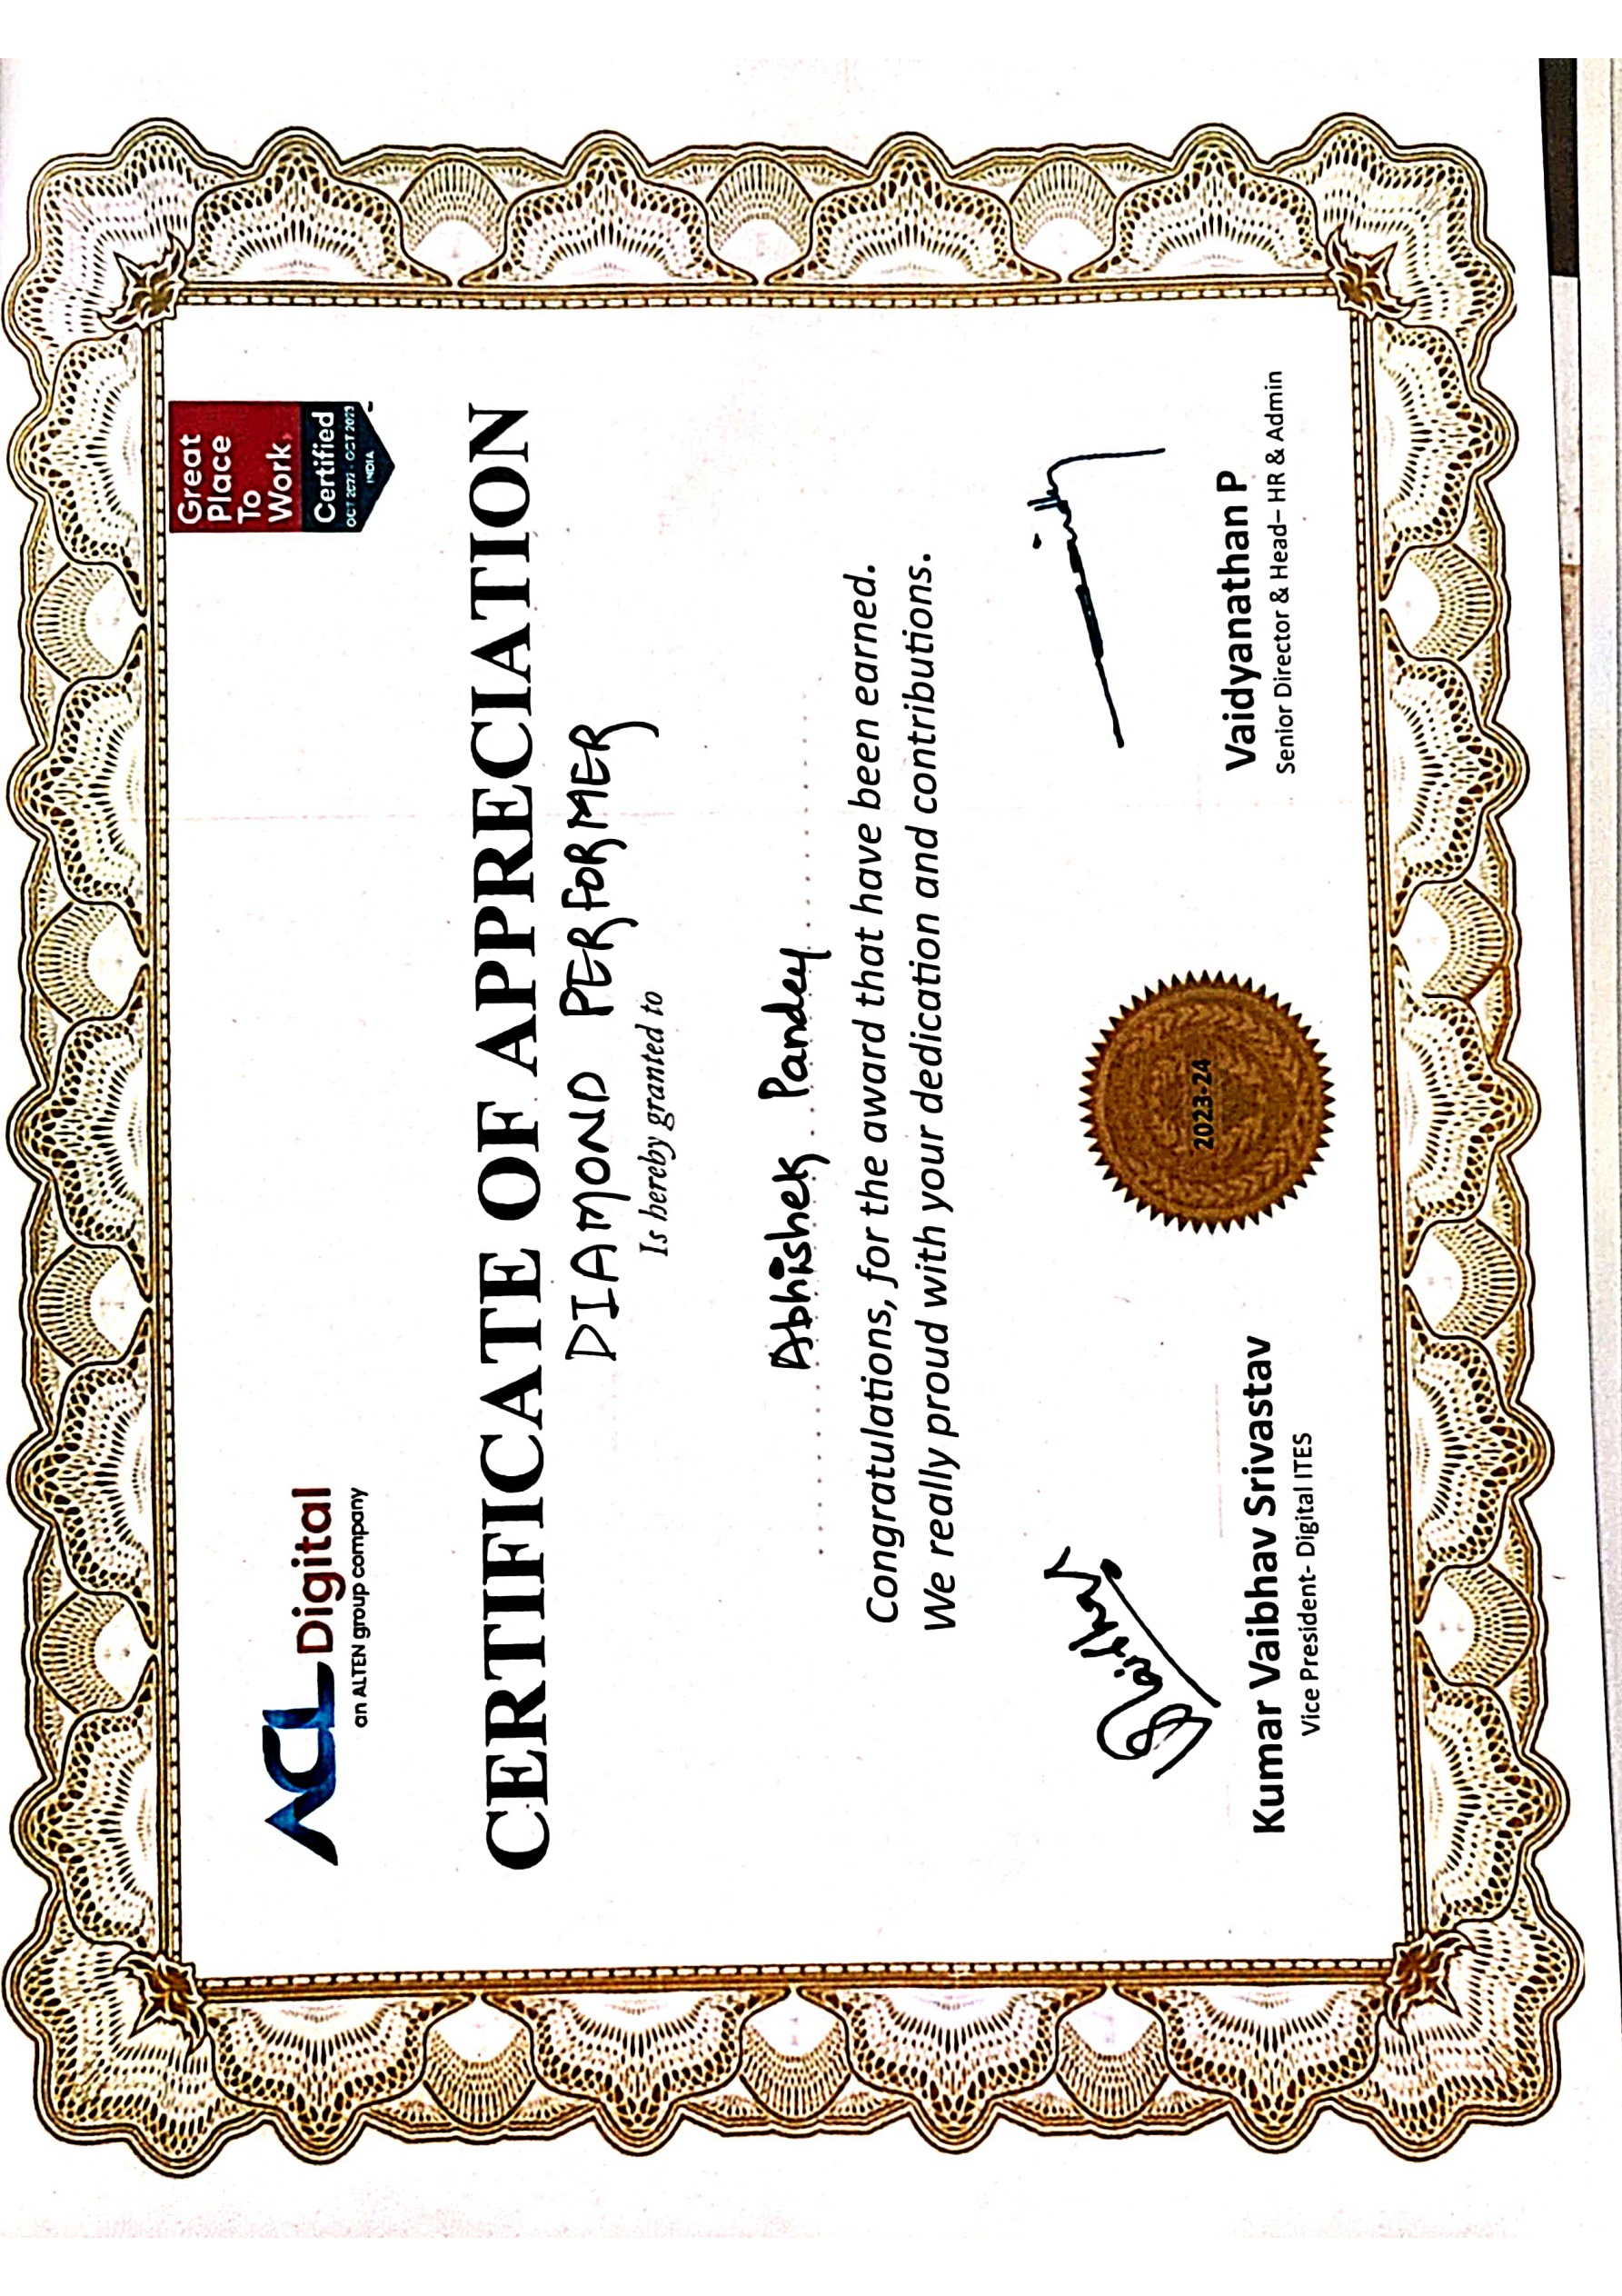 ACL Digital
an ALTEN group company
Great
Place
To
Work.
Certified
OCT 2022 - OCT 2023
INDIA
CERTIFICATE OF APPRECIATION
DIAMOND PERFORMER
Is hereby granted to
Abhishek Pandey
Congratulations, for the award that have been earned.
We really proud with your dedication and contributions.
Vaibhav
2023-24
Kumar Vaibhav Srivastav
Vice President- Digital ITES
Vaidyanathan P
Senior Director & Head– HR & Admin